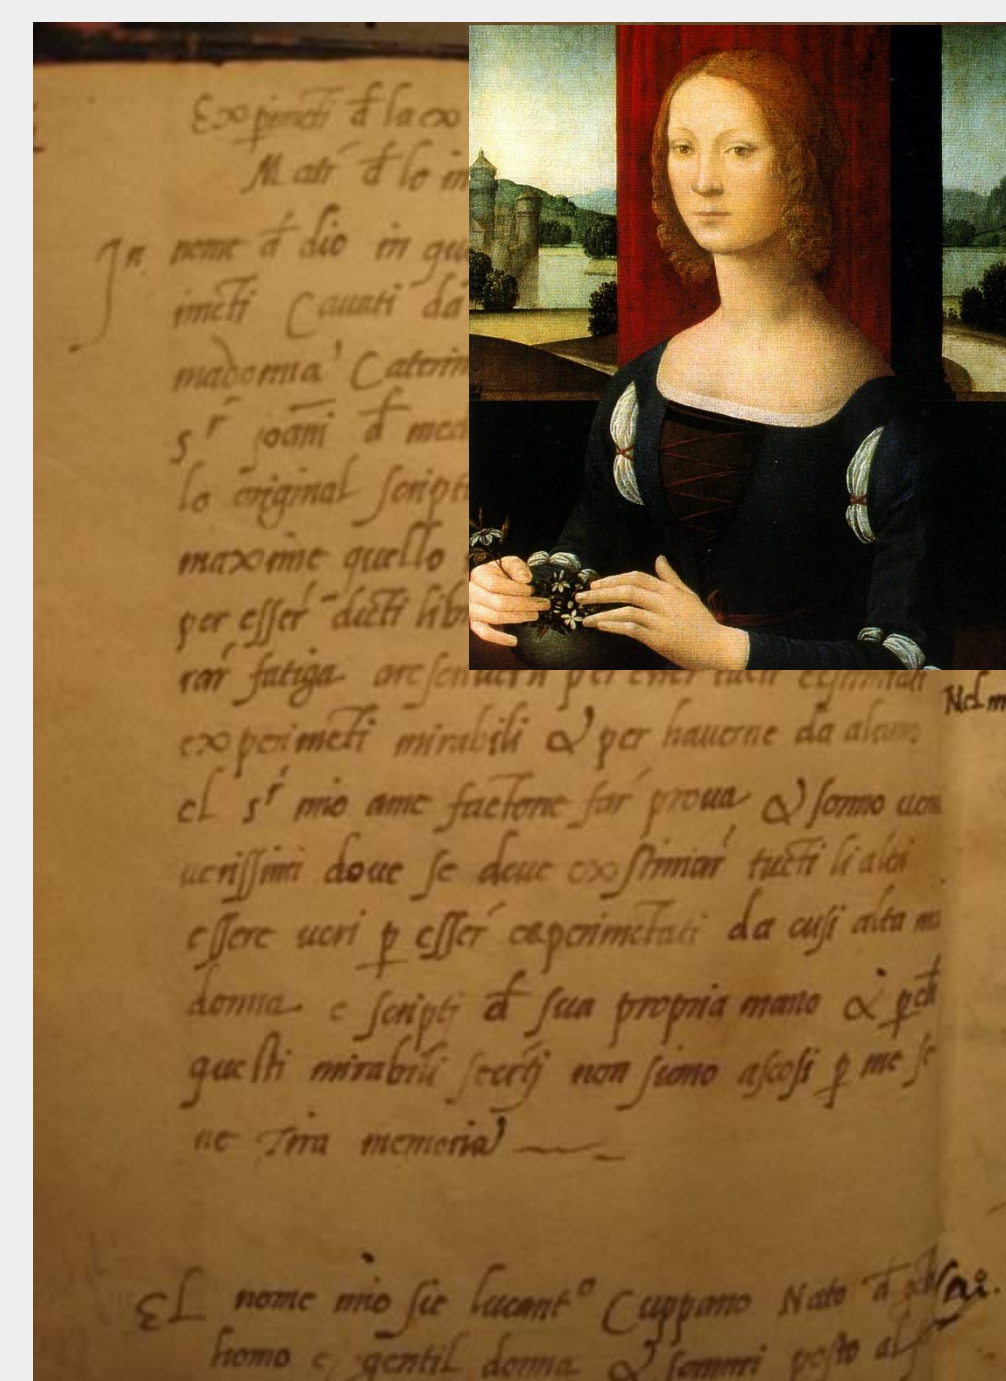 Expimeti d la ex
Matr d lo in
In nome d dio in qu
imeti Cauati da
madonna Caterin
s r joani d med
lo original scripto
maxime quello
per esser dicti lib
rar fatiga per esser tucti
experimeti mirabili & per hauerne da alcuno
el s r mio ame factone far proua & sonno
uerissimi doue se deue existimar tucti li altri
essere ueri p esser experimetati da cusi alta ma
donna e scripti d sua propria mano & pch
questi mirabili secrti non siano ascosi p me se
ne tira memoria
El nome mio sie lucant o Cuppano Nato d
homo e gentil donna & sommi posto al